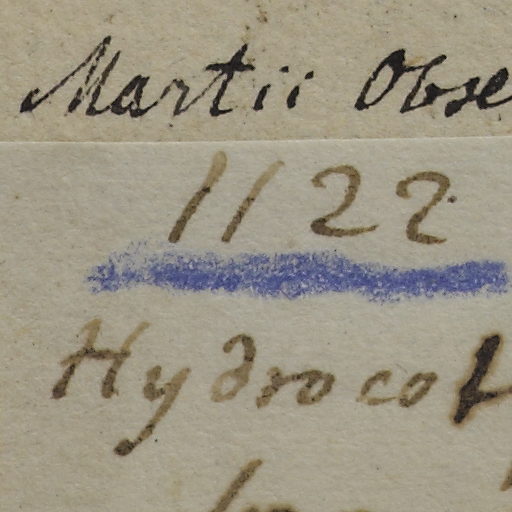 Martii Obse
1122
Hydrocot